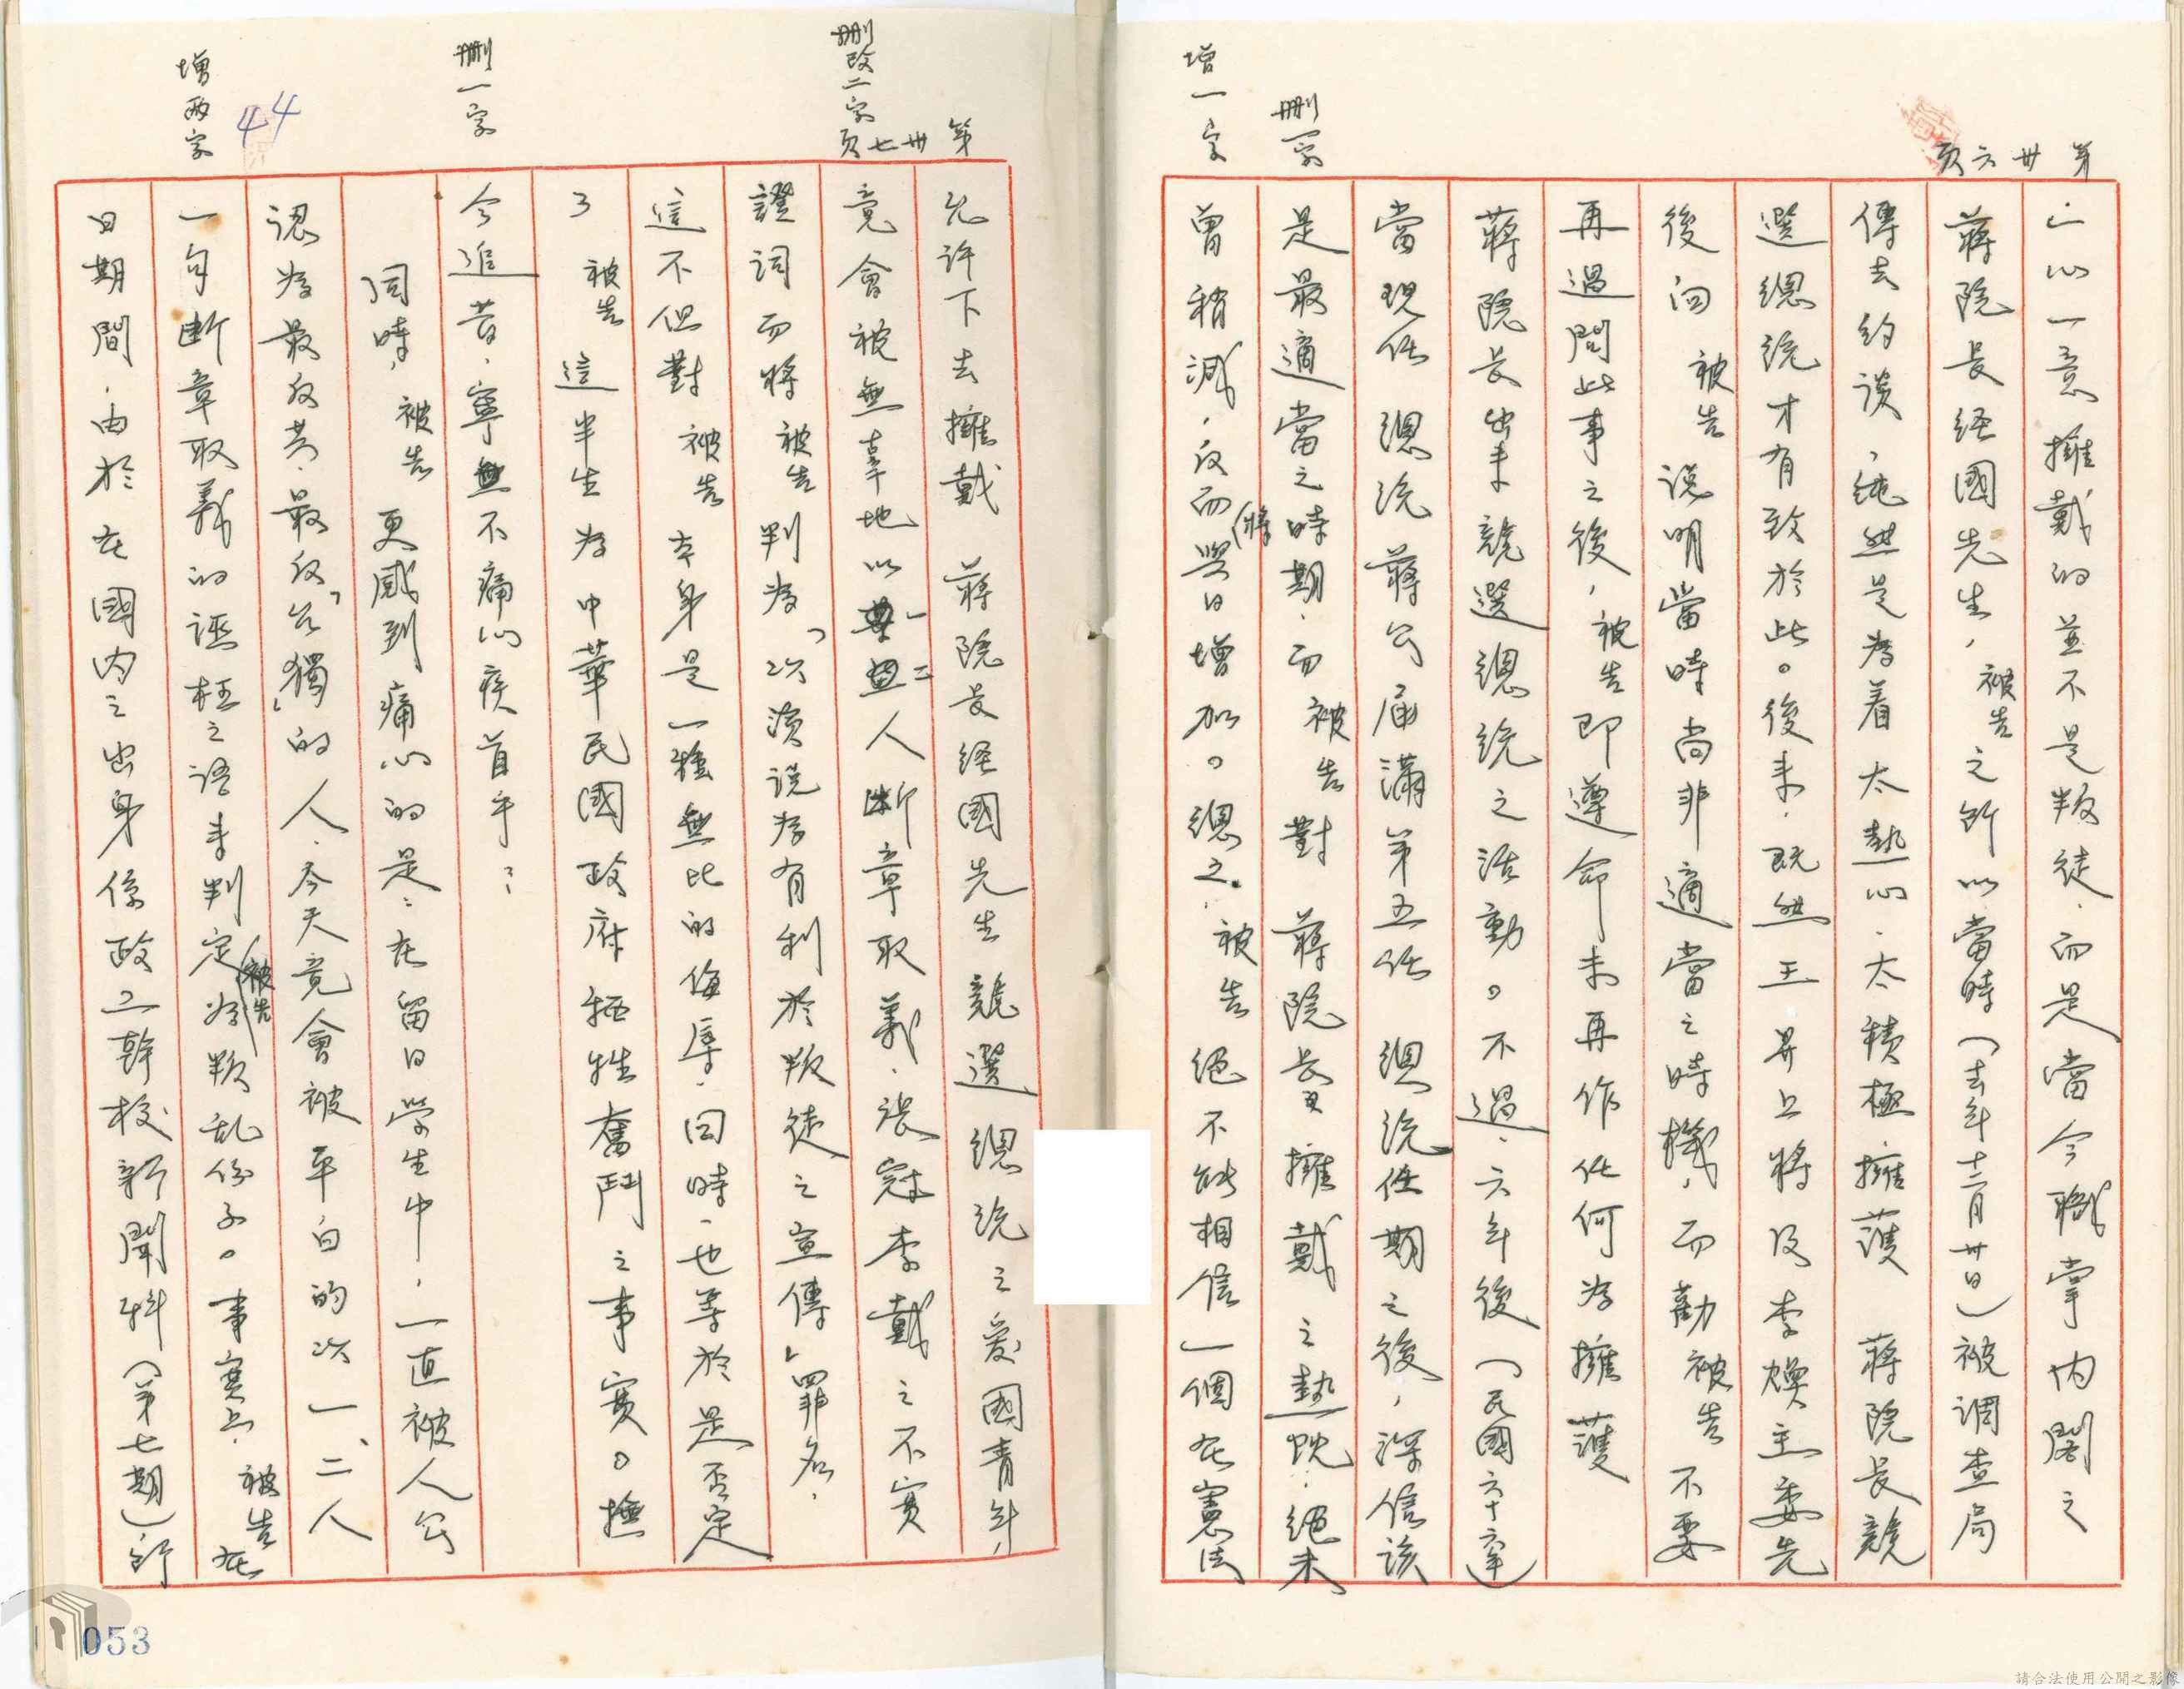 第卅六頁
：一心一意擁戴的並不是叛徒．而是當今職掌内閣之
蔣院長經國先生，被告之所以當時（去年十二月卅日）被調查局
傳去約談，純然是為着太熱心．太積極擁護　蔣院長競
選總統才有致於此。後來．既然王昇上將及李煥主委先
後向　被告　說明當時尚非適當之時機，而勸被告不要
再過問此事之後，被告即遵命未再作任何為擁護
蔣院長出來競選總統之活動。不過．六年後（民國六十六年）
當現任　總統　蔣公屆滿第五任　總統任期之後，深信該
是最適當之時期．而　被告　對　蔣院長　擁戴之熱忱．絕未
曾稍減．反而將與日增加。總之．被告　絕不能相信一個在憲法
增一字
刪一字
第卅七頁
允許下去擁戴　蔣院長經國先生競選總統之愛國青年，
竟會被無辜地以一、二人斷章取義．張冠李戴之不實
證詞而將被告判為「以演說為有利於叛徒之宣傳」罪名．
這不但對　被告　本身是一種無比的侮辱．同時．也等於是否定
了　被告　這半生為中華民國政府犧牲奮鬥之事實。撫
今追昔．寧無不痛心疾首乎？
同時，被告　更感到痛心的是：在留日學生中，一直被人公
認為最反共．最反「台獨」的人．今天竟會被平白的以一、二人
一句斷章取義的誣枉之語來判定被告為叛乱份子。事實上．被告在
日期間．由於在國内之出身係政工幹校新聞科（第七期）．所
刪改二字
刪一字
增兩字
44
053
請合法使用公開之影像